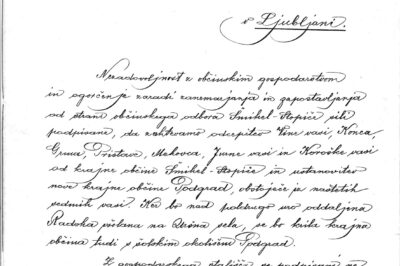 v Ljubljani.
Nezadovoljnost z občinskim gospodarstvom
in ogorčenje zaradi zanemarjanja in zapostavljanja
od strani občinskega odbora Šmihel-Stopiče sili
podpisane, da zahtevamo odcepitev Vine vasi, Konca,
Gruma, Pristave, Mehovca, Jurne vasi in Koroške vasi
od krajne občine Šmihel-Stopiče in ustanovitev
nove krajne občine Podgrad, obstoječe iz naštetih
sedmih vasi. Ker bo nad poldrugo uro oddaljena
Radoha všolana na sela, se bo krila krajna
občina tudi s šolskim okolišem Podgrad.
Z gospodarskega stališča se